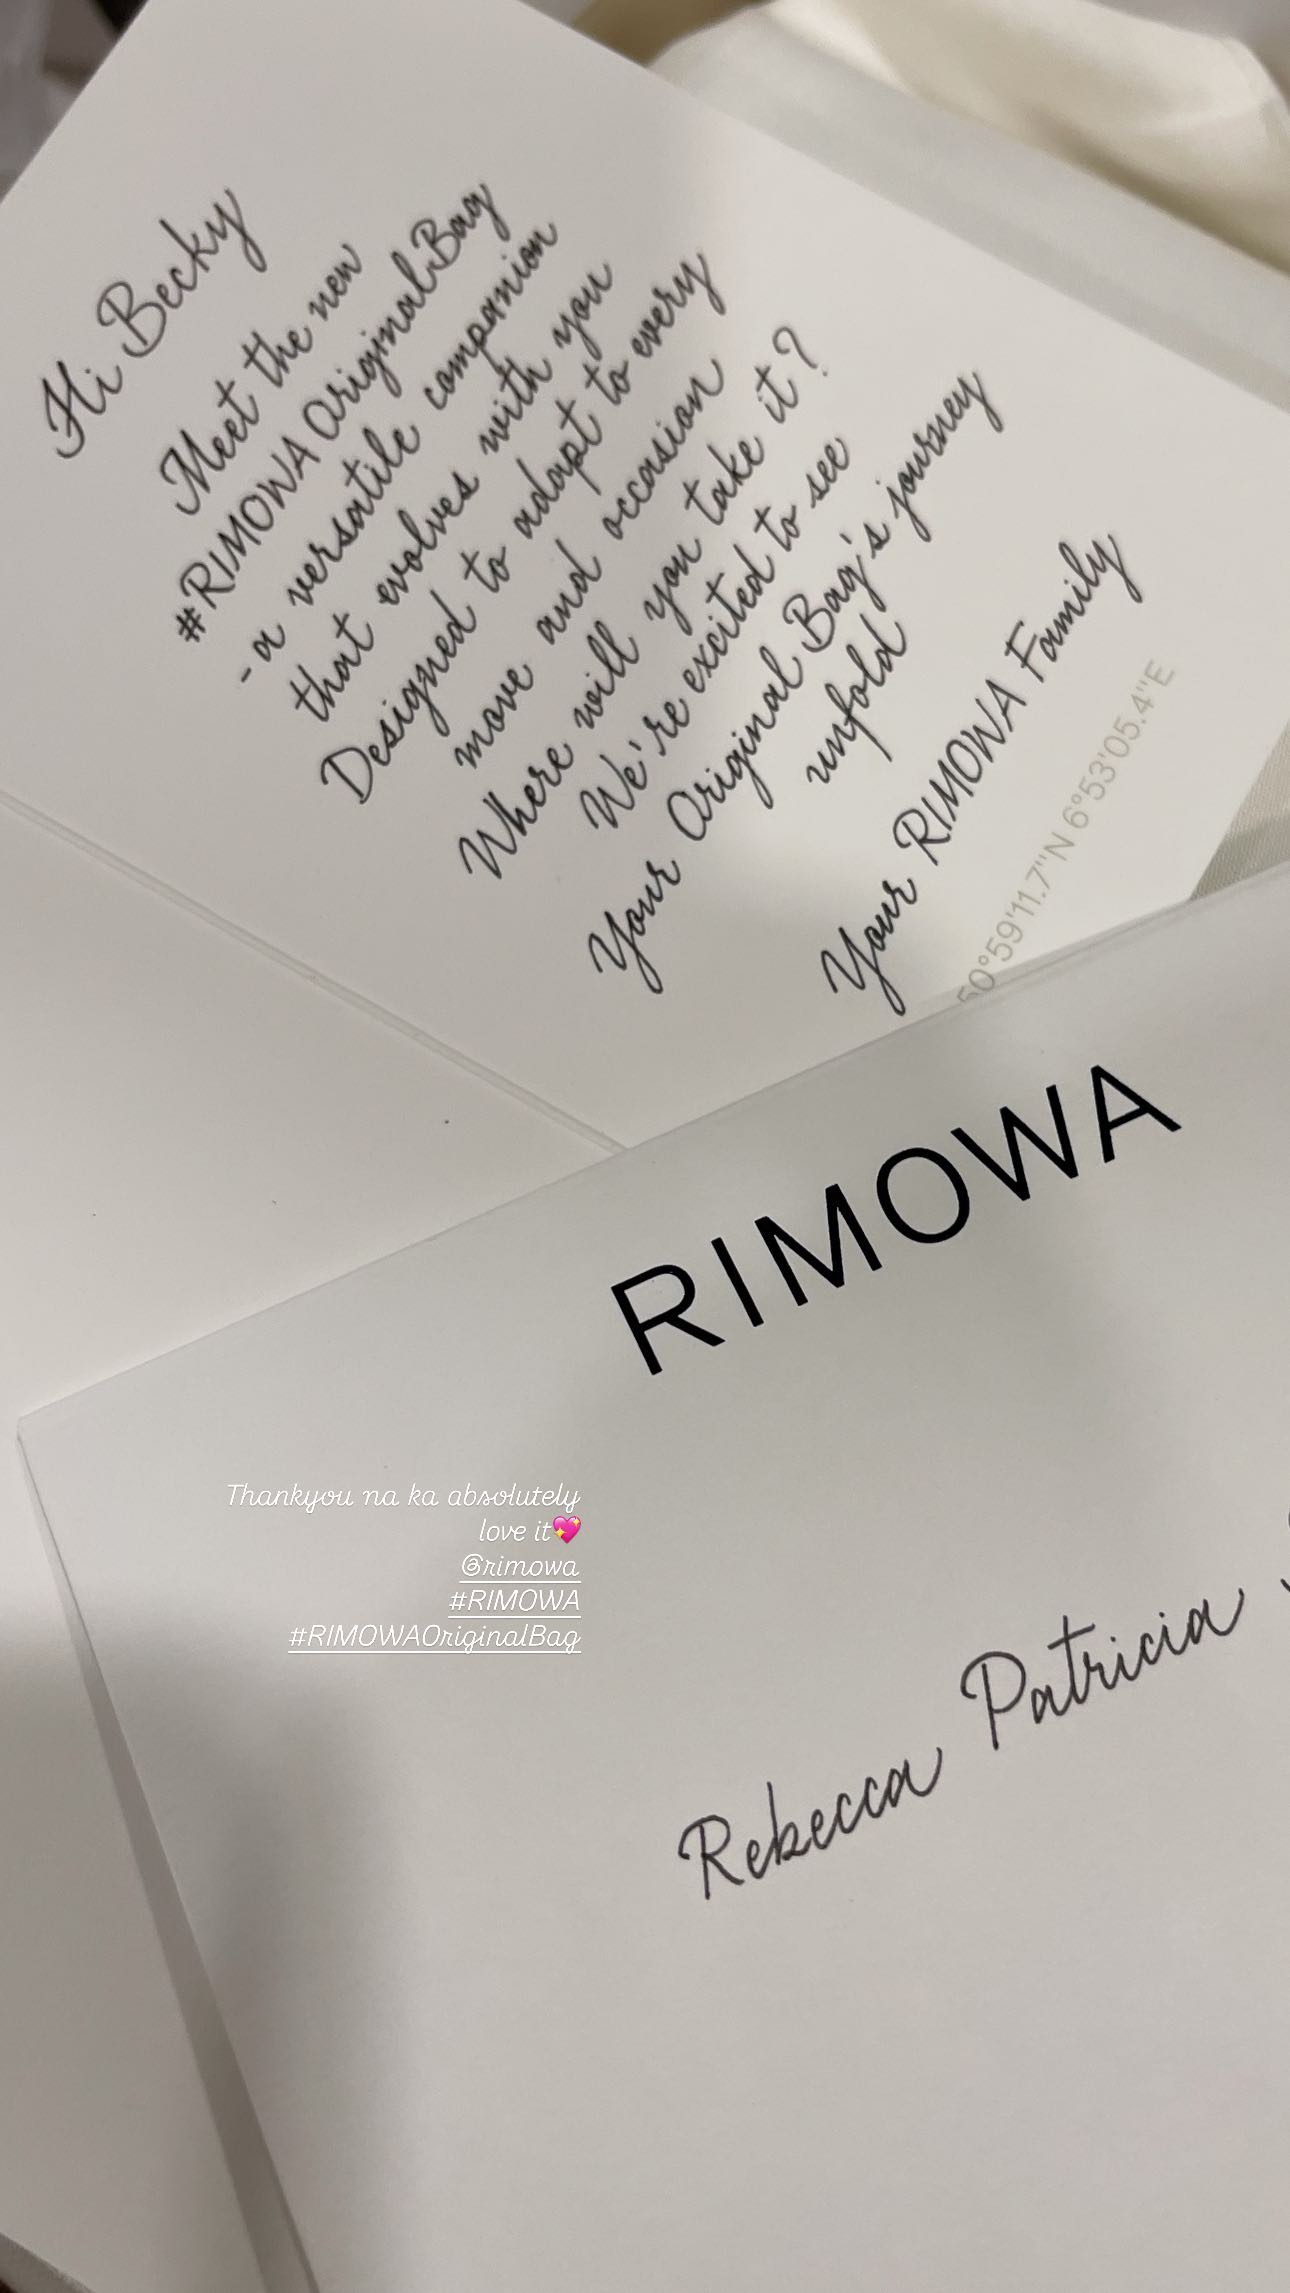 Hi Becky
Meet the new
#RIMOWA Original Bag
- a versatile companion
that evolves with you
Designed to adapt to every
move and occasion
Where will you take it?
We're excited to see
Your Original Bag's journey
unfold
Your RIMOWA Family
50°59'11.7"N 6°53'05.4"E
RIMOWA
Thankyou na ka absolutely
love it💖
@rimowa
#RIMOWA
#RIMOWAOriginalBag
Rebecca Patricia